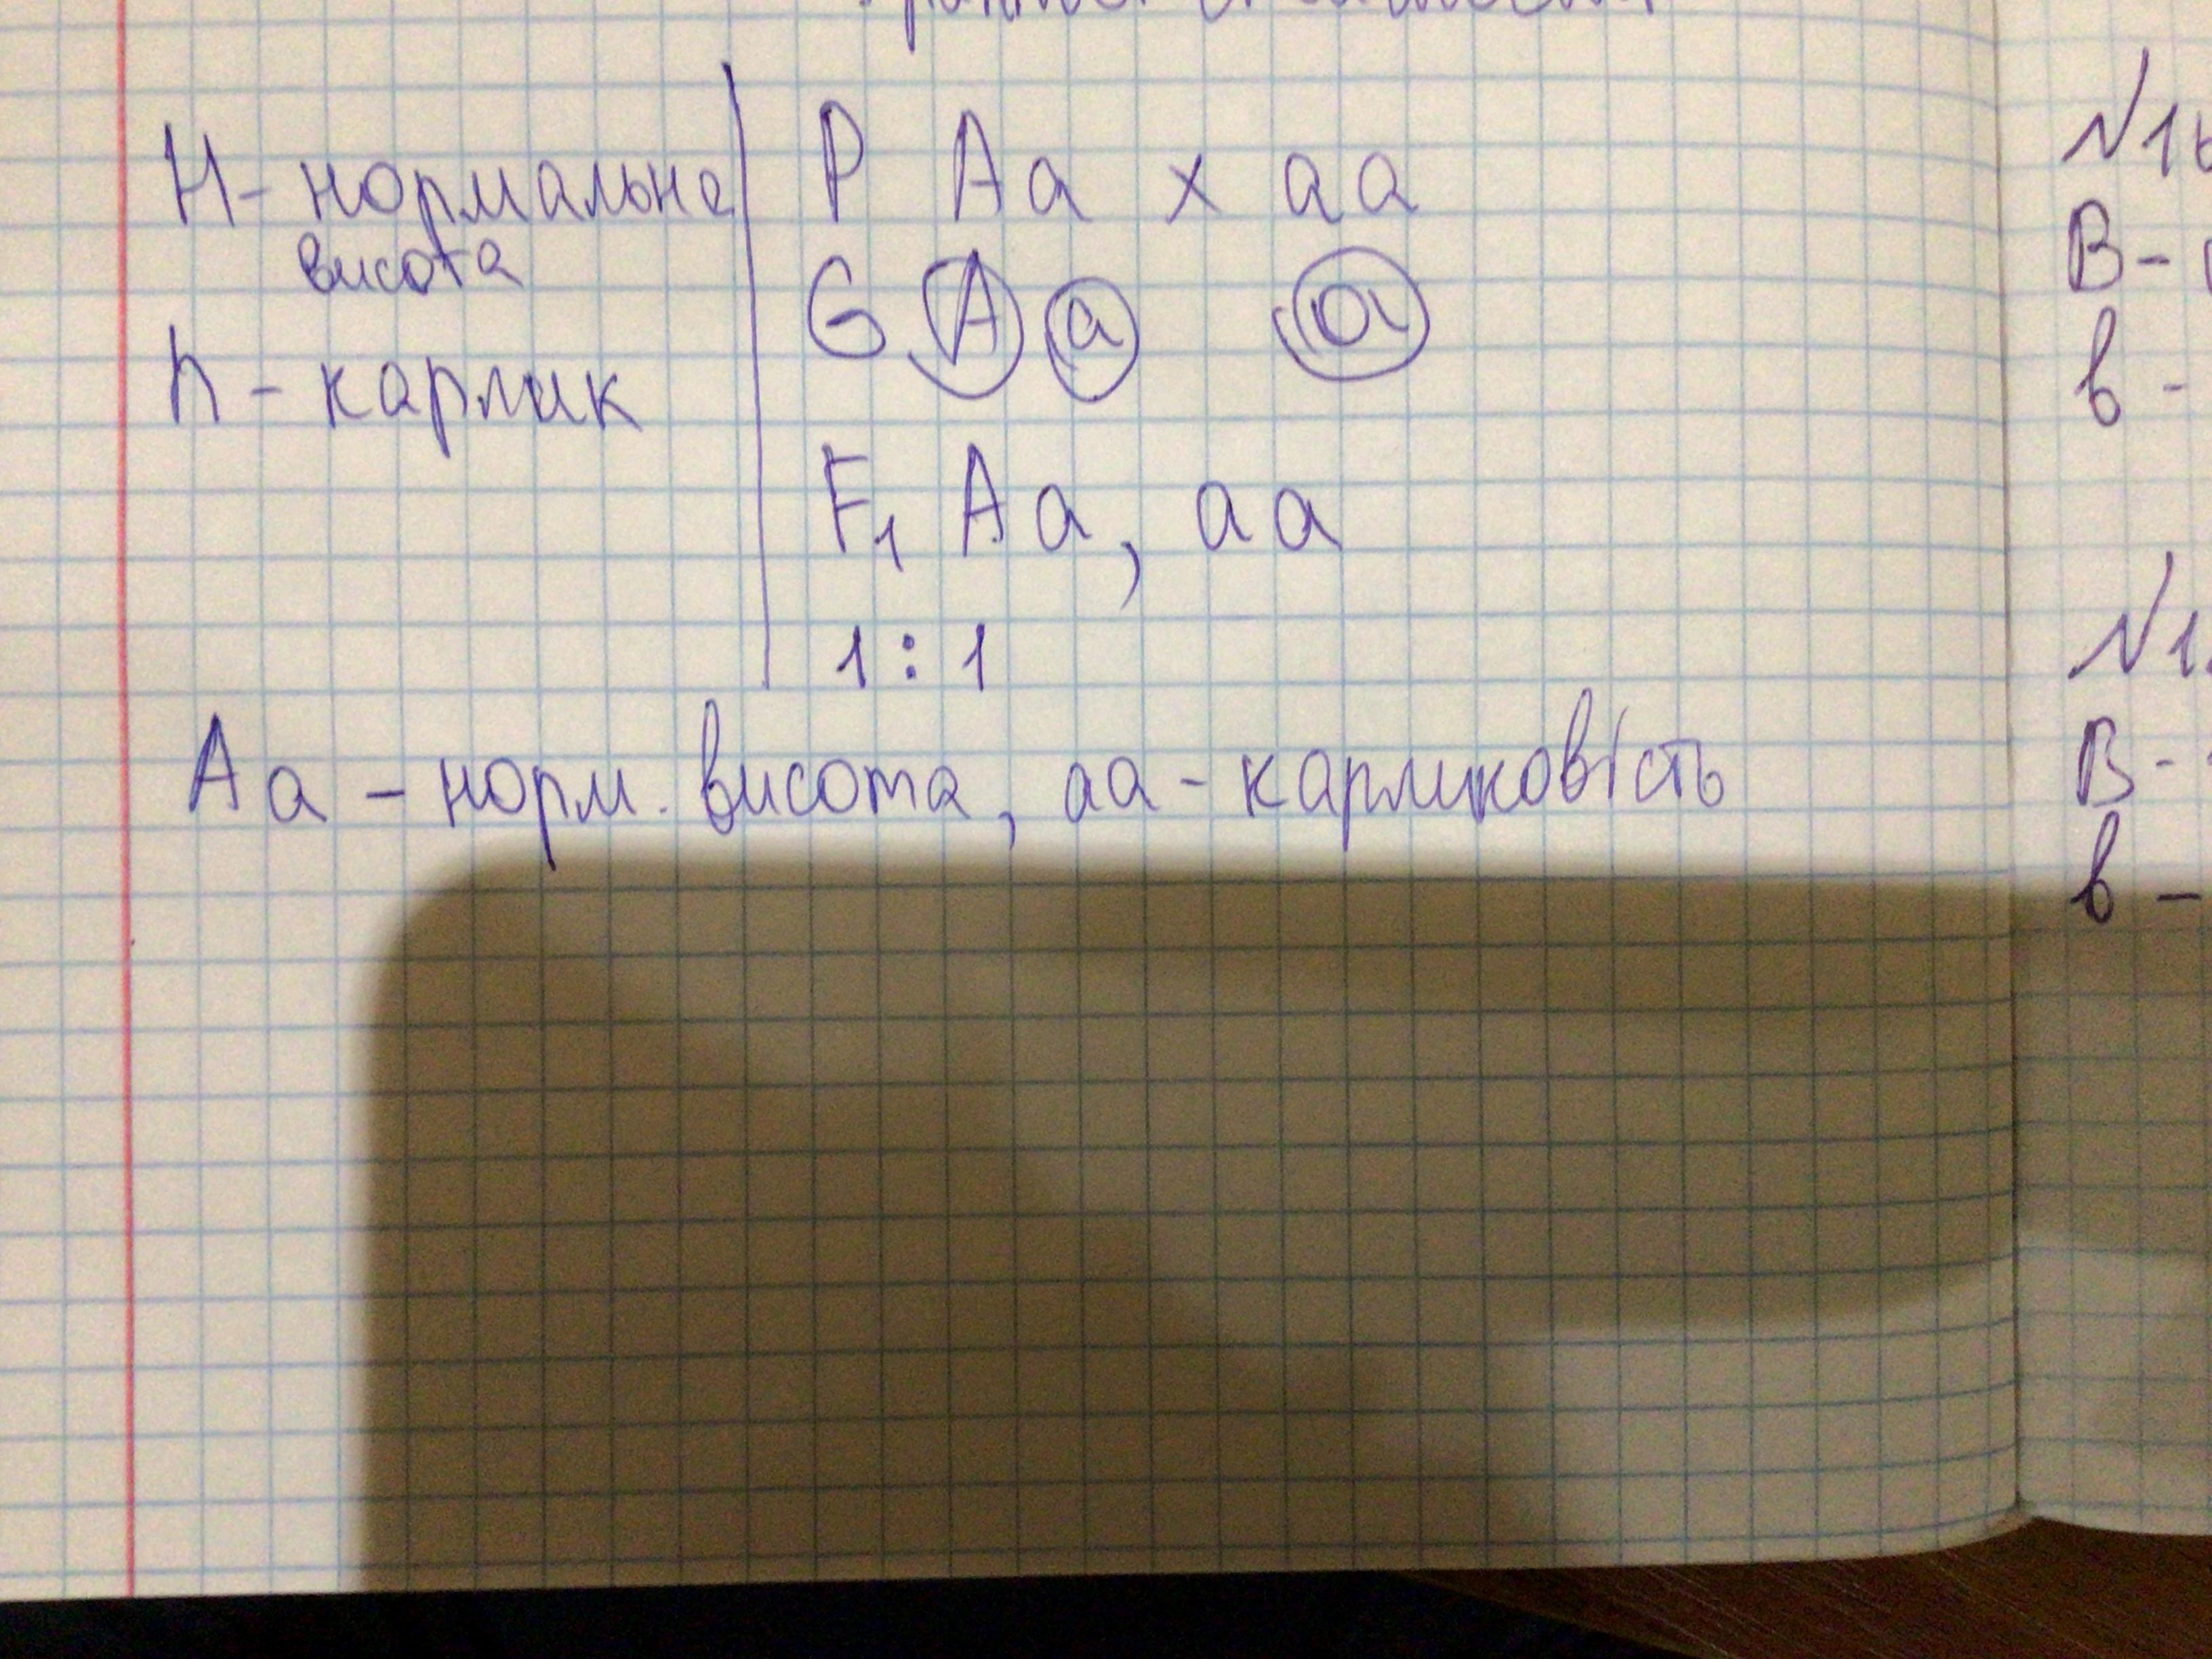 H - нормальна
висота
h - карлик
P Aa x aa
G A a a
F1 Aa, aa
1 : 1
Aa - норм. висота, aa - карликовість
B -
в -
B -
в -